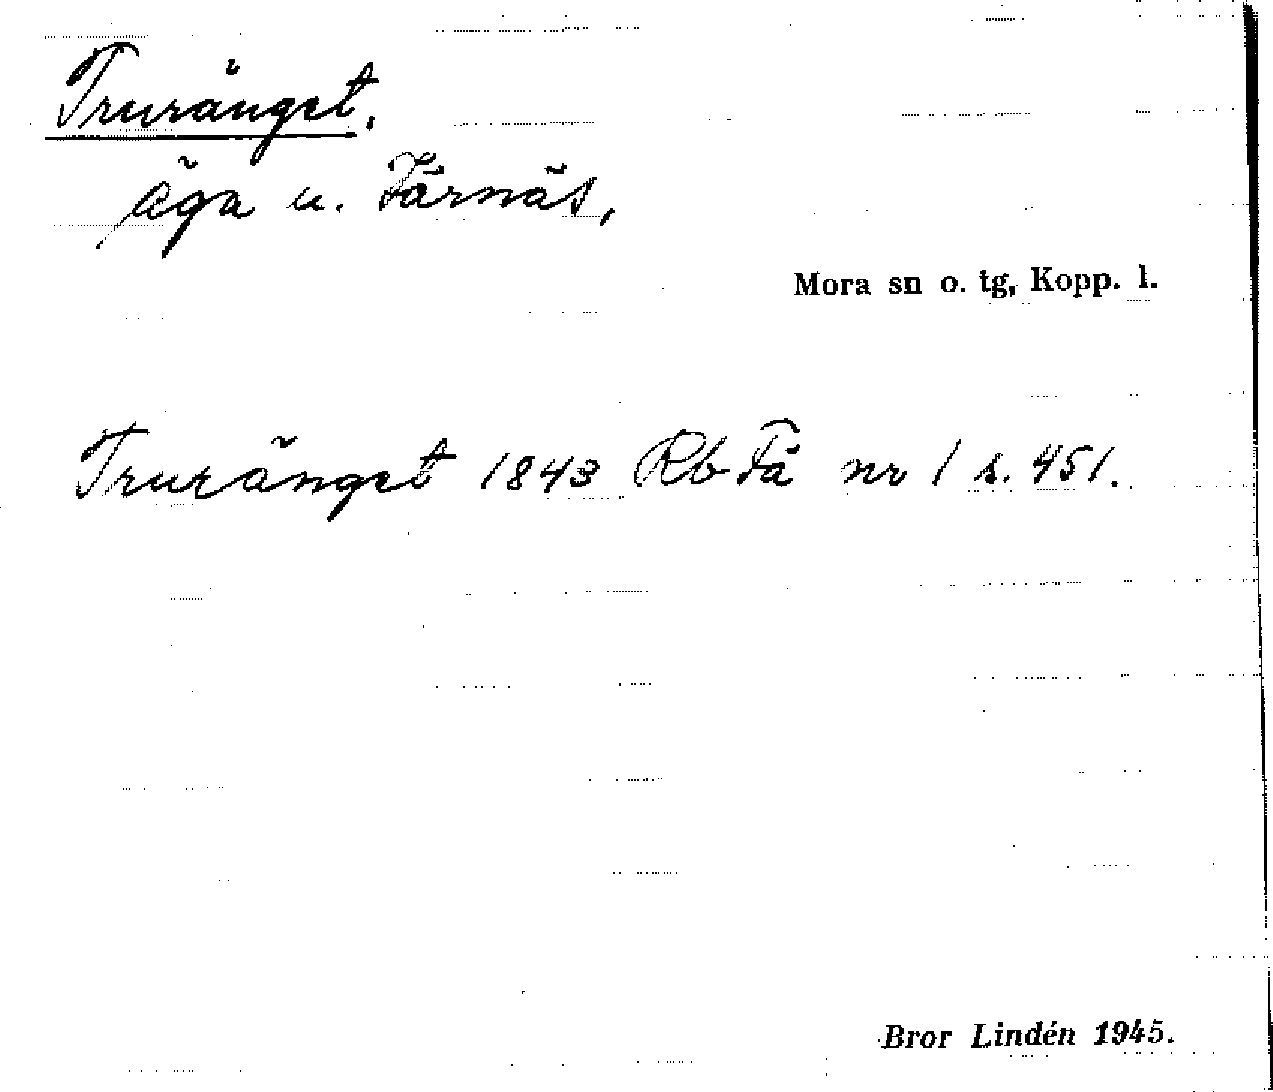 Truränget.
äga u. Färnäs,
Mora sn o. tg, Kopp. l.
Truränget 1843 Rb Fä nr 1 s. 451.
Bror Lindén 1945.